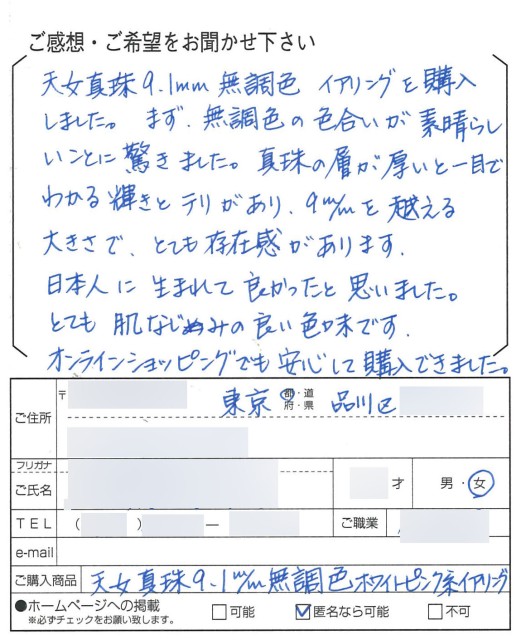 ご感想・ご希望をお聞かせ下さい
天女真珠9.1mm無調色 イアリングを購入
しました。まず、無調色の色合いが素晴らし
いことに驚きました。真珠の層が厚いと一目で
わかる輝きとテリがあり、9m/mを越える
大きさで、とても存在感があります。
日本人に生まれて良かったと思いました。
とても肌なじみの良い色味です。
オンラインショッピングでも安心して購入できました。
ご住所
〒
東京 都・道 府・県 品川区
フリガナ
ご氏名
才
男・女
TEL ( ) ―
ご職業
e-mail
ご購入商品 天女真珠9.1m/m無調色ホワイトピンク系イアリング
●ホームページへの掲載 □可能 ☑匿名なら可能 □不可
※必ずチェックをお願い致します。